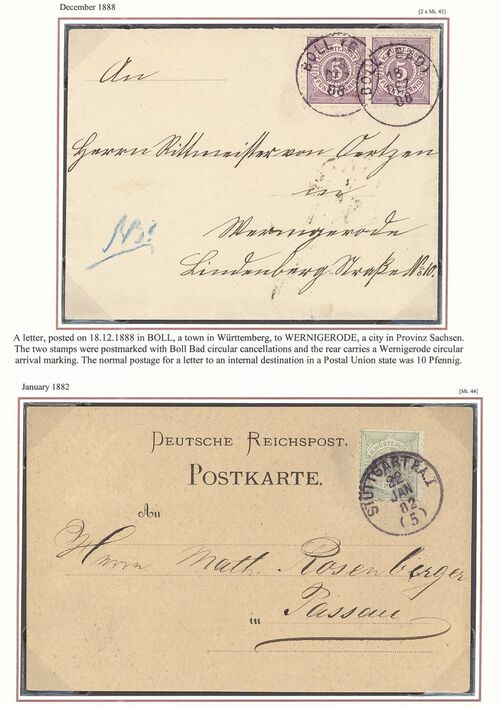 December 1888
[2 x Mi. 45]
BOLL
88
5
5
BOLL (BAD)
18
88
An
Herrn Rittmeister von Oertzen
in
Wernigerode
Lindenberg Straße No 10.
A letter, posted on 18.12.1888 in BOLL, a town in Württemberg, to WERNIGERODE, a city in Provinz Sachsen.
The two stamps were postmarked with Boll Bad circular cancellations and the rear carries a Wernigerode circular
arrival marking. The normal postage for a letter to an internal destination in a Postal Union state was 10 Pfennig.
January 1882
[Mi. 44]
DEUTSCHE REICHSPOST.
POSTKARTE.
STUTTGART P.A.I
22
JAN
82
(5)
An
Herrn Math. Rosenberger
in
Passau